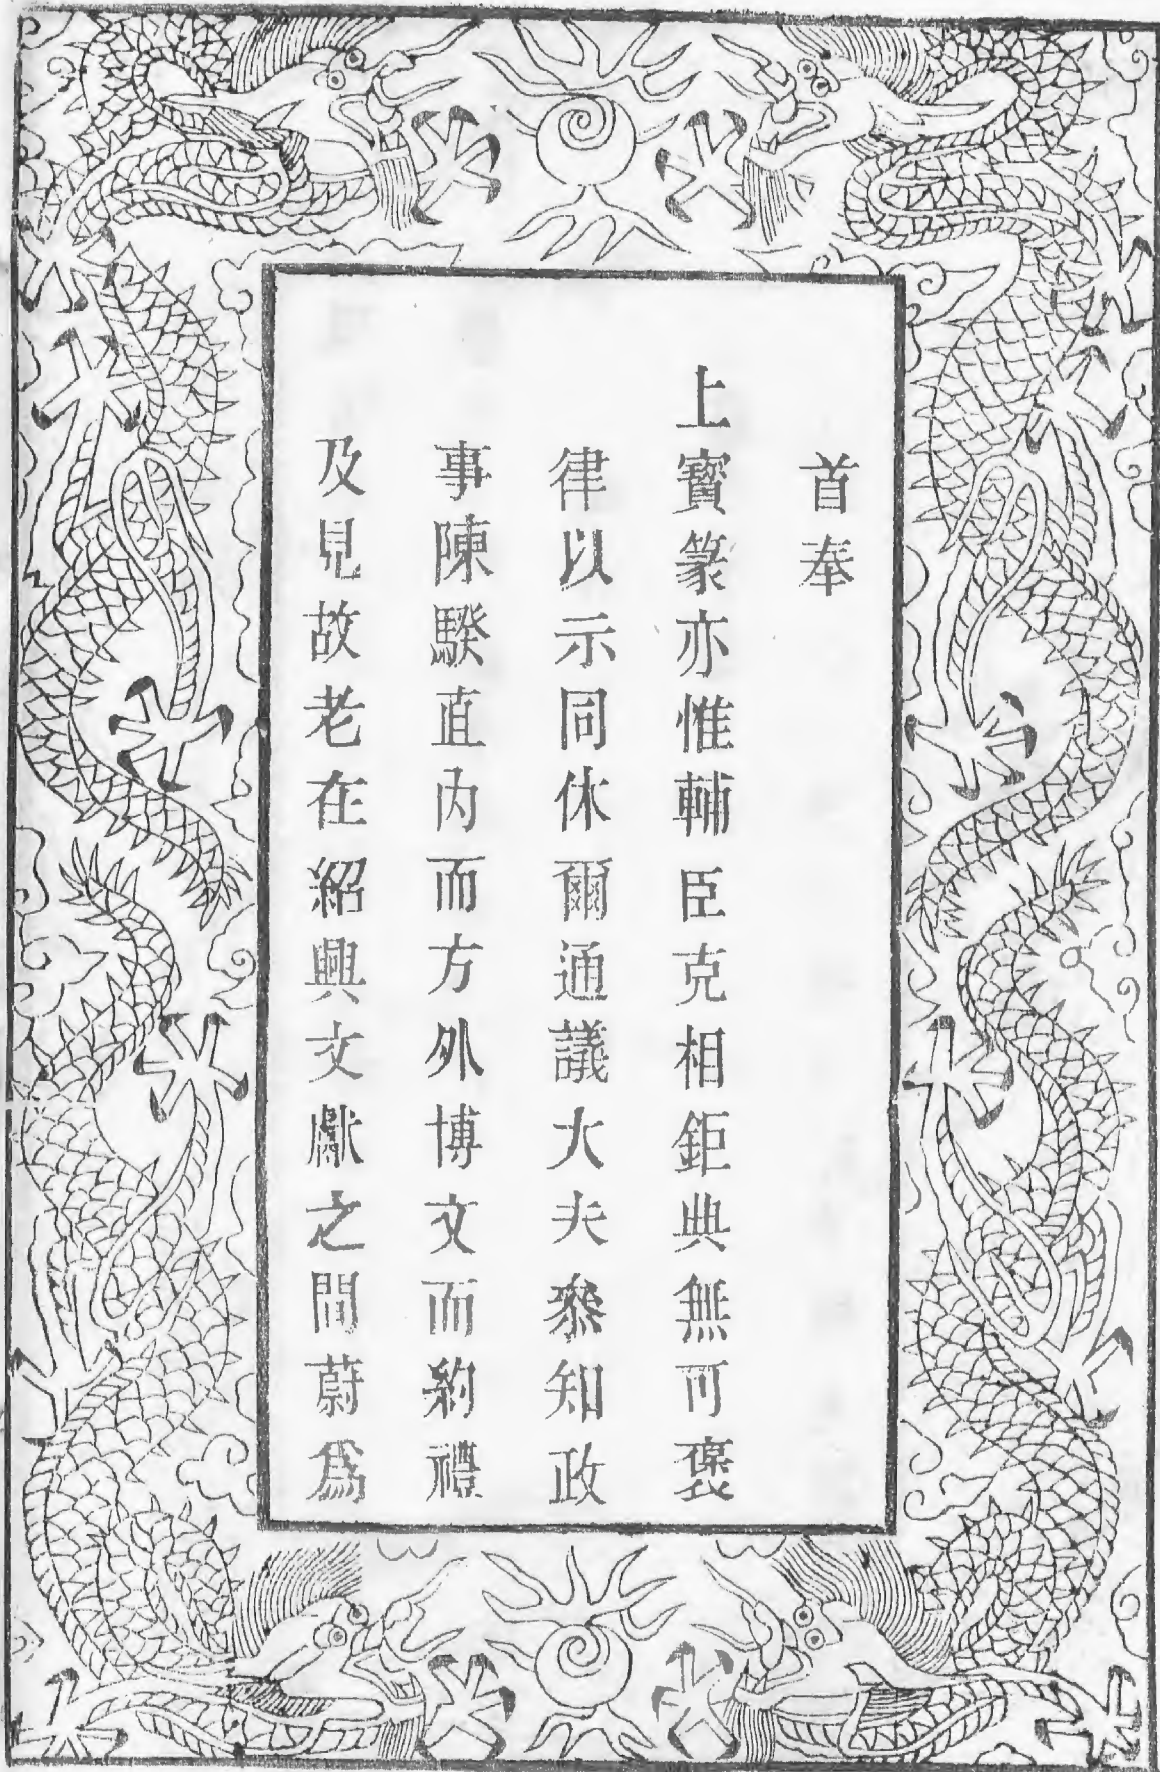 首奉
上寳篆亦惟輔臣克相鉅典無可褒
律以示同休爾通議大夫叅知政
事陳騤直内而方外博文而約禮
及見故老在紹興文獻之間蔚爲